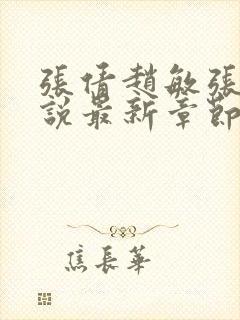 張倩趙敏張
說最新章節
焦長華